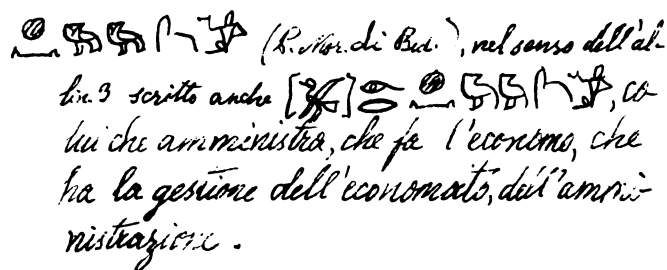 (P. Mor. di Bul.), nel senso dell'al-
lin. 3 scritto anche [ ] , co
lui che amministra, che fa l'economo, che
ha la gestione dell'economato, dell'ammi-
nistrazione.